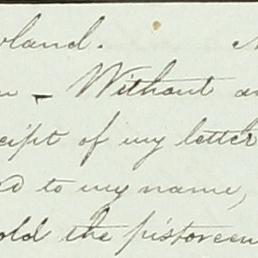 land.
- Without
of my letter
to my name,
old the pistoreen